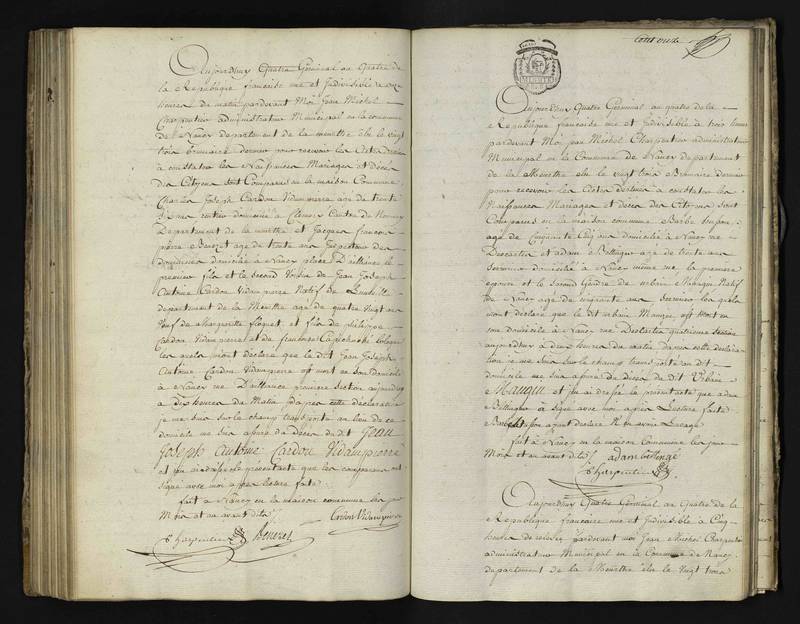 Aujourd'huy Quatre Germinal an Quatre de
la République française une et Indivisible à
heures de matin pardevant Moi Jean Michel
Charpentier administrateur Municipal en la commune
de Nancy département de la meurthe élu le vingt
trois brumaire dernier pour recevoir les Actes
à constater les Naissances Mariages et décès
des Citoyens sont Comparus en la maison Commune
Charles Joseph Cardon Vidampierre age de trente
domicilié à Canton de Nancy
Département de la meurthe et Jacques françois
pierre age de trente ans Inspecteur des
domaines domicilié à Nancy place D'alliance le
premier fils et le second Voisin de Jean Joseph
Antoine Cardon Vidampierre Natif de Lunéville
département de la Meurthe age de quatre vingt ans
Veuf de Marguerite et fils de philippe
Cardon Vidampierre et de
les quels mont déclaré que le dit Jean Joseph
Antoine Cardon Vidampierre est mort en son Domicile
à Nancy rue D'alliance première section aujourd'huy
à dix heures du Matin d'après cette déclaration
je me suis sur le champ transporté au lieu de ce
domicile me suis assuré du Décès du dit Jean
Joseph Antoine Cardon Vidampierre
et j'en ai dressé le présent acte que les comparans ont
signé avec moi après lecture faite
fait à Nancy en la maison commune les jour
Mois et an avant dits
Cardon Vidampierre
Charpentier Benezet
Aujourd'huy Quatre Germinal an quatre de la
République française une et Indivisible à trois heures
pardevant Moi Jean Michel Charpentier administrateur
Municipal en la Commune de Nancy département
de la Meurthe élu le vingt trois Brumaire dernier
pour recevoir les Actes destinés à constater les
Naissances Mariages et décès des Citoyens sont
Comparus en la maison commune Barbe
age de Cinquante Cinq ans domiciliée à Nancy rue
Descartes et adam Bellingé age de trente ans
Serrurier domicilié à Nancy même rue la première
épouse et le second Gendre de urbain Mangin Natif
de Nancy age de soixante ans Serrurier les quels
mont déclaré que le dit urbain Mangin est mort en
son domicile à Nancy rue Descartes quatrième section
aujourd'huy à deux heures du matin d'après cette déclara
tion je me suis sur le champ transporté au dit
domicile me suis assuré du Décès du dit Urbain
Mangin et j'en ai dressé le présent acte que adam
Bellingé a signé avec moi après Lecture faite
ayant déclaré n'en avoir l'usage
fait à Nancy en la maison Commune les jour
Mois et an avant dits adam bellingé
Charpentier
Aujourd'huy Quatre Germinal an Quatre de la
République française une et Indivisible à Cinq
heures de relevée pardevant moi Jean Michel Charpentier
administrateur Municipal en la Commune de Nancy
département de la Meurthe élu le vingt trois